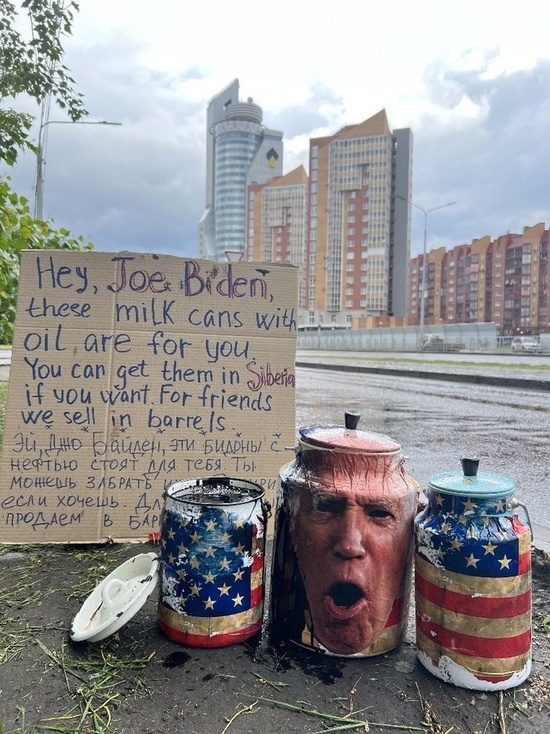 Hey, Joe Biden,
these milk cans with
oil are for you.
You can get them in Siberia
if you want. For friends
we sell in barrels.
Эй, Джо Байден, эти бидоны с
нефтью стоят для тебя. Ты
можешь забрать
если хочешь.
продаем в